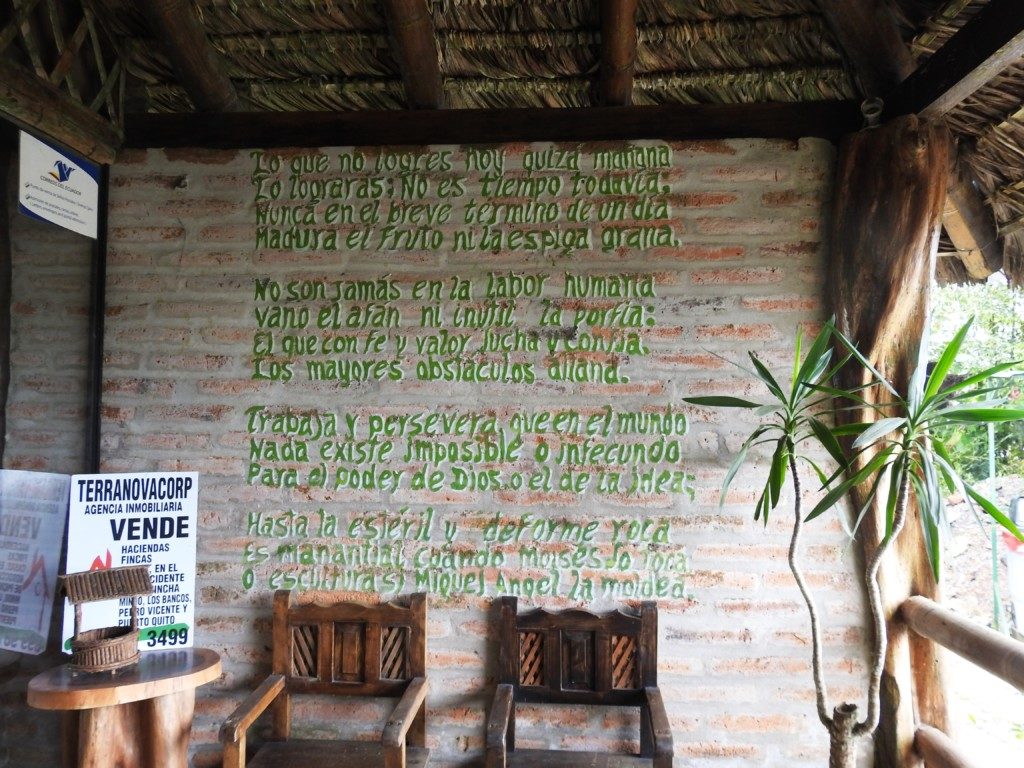 CORREOS DEL ECUADOR
Lo que no logres hoy quizá mañana
Lo lograras; No es tiempo todavia;
Nunca en el breve termino de un dia
Madura el Fruto ni la espiga grana.
No son jamás en la labor humana
vano el afán ni inutil la porfia:
El que con fe y valor lucha y confia,
Los mayores obstáculos allana.
Trabaja y persevera, que en el mundo
Nada existe imposible o infecundo
Para el poder de Dios, o el de la idea;
Hasta la estéril y deforme roca
Es manantial, cuando Moises lo toca
O escultura si Miguel Angel la moldea.
TERRANOVACORP
AGENCIA INMOBILIARIA
VENDE
HACIENDAS
FINCAS
EN EL
MINDO, LOS BANCOS,
PEDRO VICENTE Y
PUERTO QUITO
3499